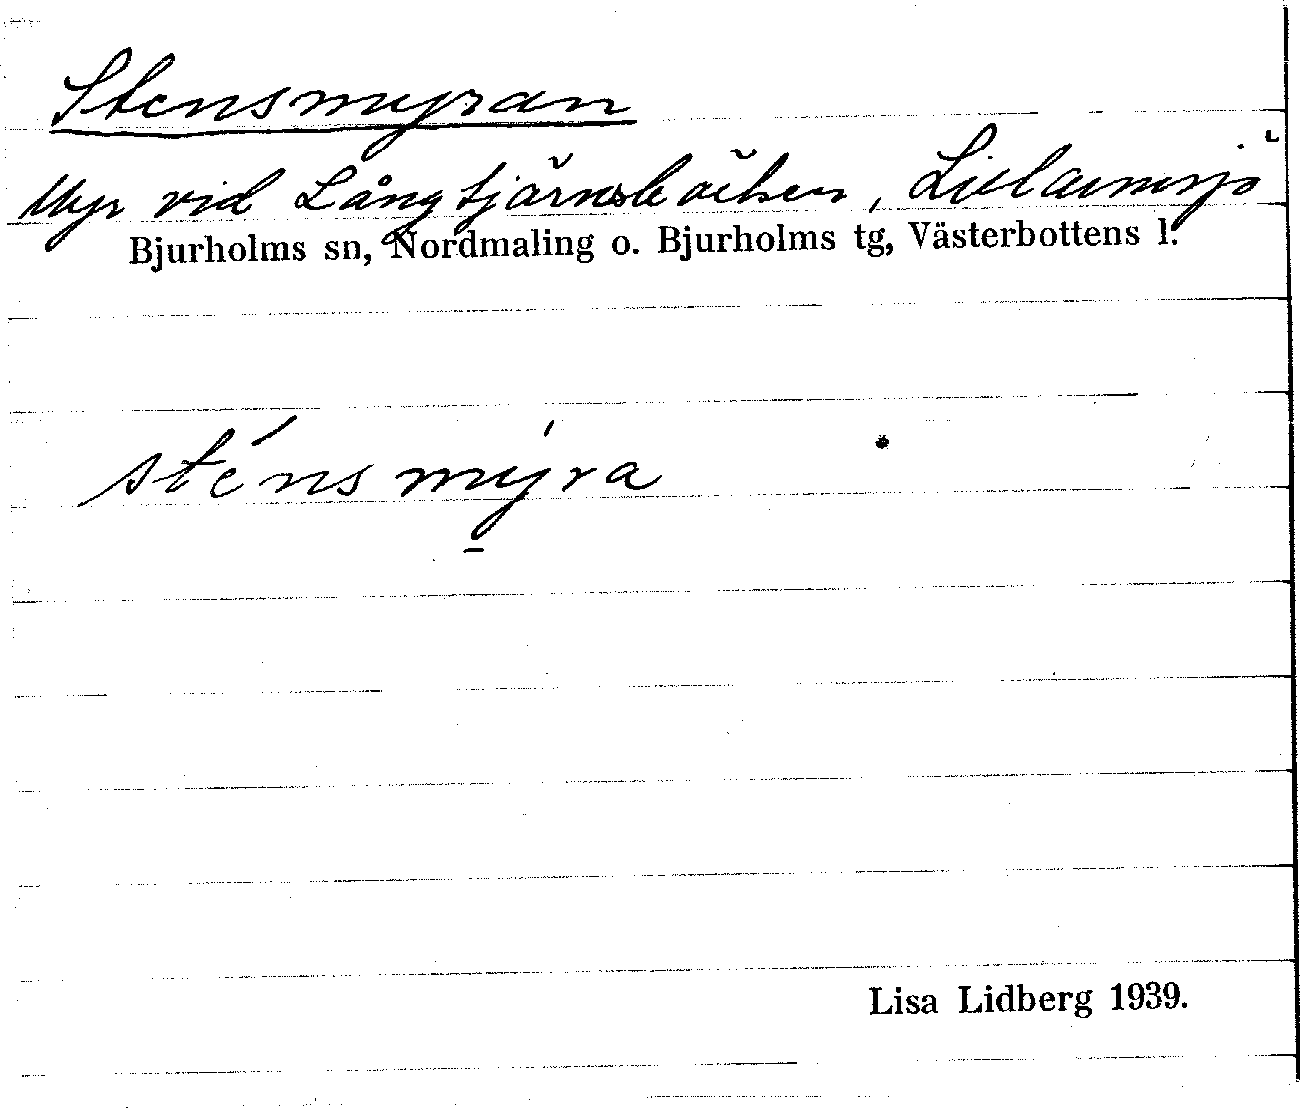 Stensmyran
Myr vid Långtjärnsbäcken, Lillarmsjö
Bjurholms sn, Nordmaling o. Bjurholms tg, Västerbottens l.
sténsmýra
Lisa Lidberg 1939.